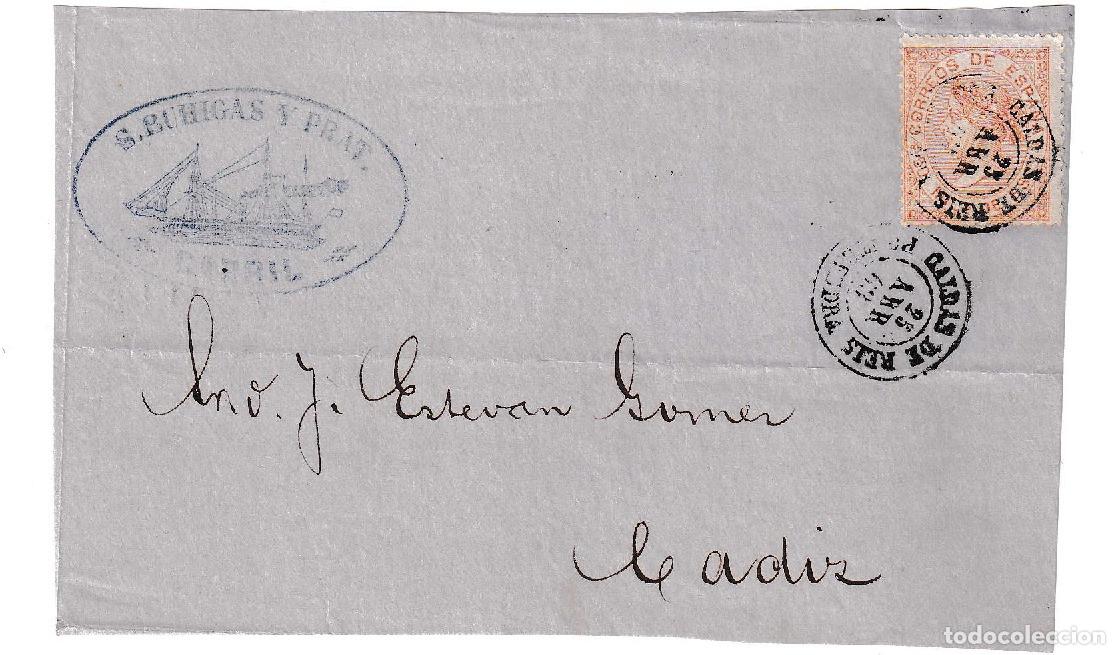 S. BUHIGAS Y PRAT.
CARRIL
CORREOS DE ESPAÑA
CALDAS DE REIS
25
ABR
CALDAS DE REIS
PONTEVEDRA
25
ABR
J. Estevan Gomez
Cadiz
todocoleccion